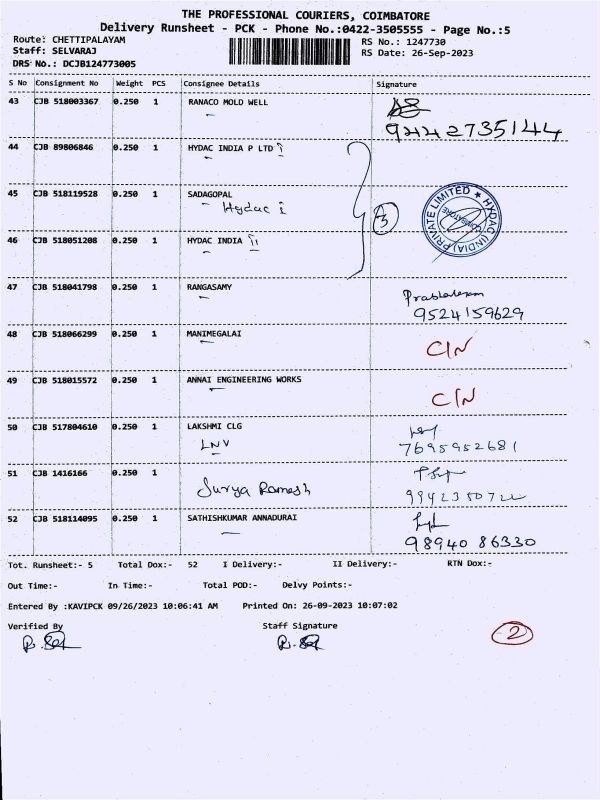 THE PROFESSIONAL COURIERS, COIMBATORE
Delivery Runsheet - PCK - Phone No.:0422-3505555 - Page No.:5
Route: CHETTIPALAYAM
RS No.: 1247730
Staff: SELVARAJ
RS Date: 26-Sep-2023
DRS No.: DCJB124773005
S No Consignment No Weight PCS Consignee Details Signature
43 CJB 518003367 0.250 1 RANACO MOLD WELL
9442735144
44 CJB 89806846 0.250 1 HYDAC INDIA P LTD
45 CJB 518119528 0.250 1 SADAGOPAL
Hydac i
3
HYDAC (INDIA) PRIVATE LIMITED
COIMBATORE
46 CJB 518051208 0.250 1 HYDAC INDIA ii
47 CJB 518041798 0.250 1 RANGASAMY
9524159629
48 CJB 518066299 0.250 1 MANIMEGALAI
C/N
49 CJB 518015572 0.250 1 ANNAI ENGINEERING WORKS
C/N
50 CJB 517804610 0.250 1 LAKSHMI CLG
LNV
7695952681
51 CJB 1416166 0.250 1
Surya Ramesh
52 CJB 518114095 0.250 1 SATHISHKUMAR ANNADURAI
98940 86330
Tot. Runsheet:- 5 Total Dox:- 52 I Delivery:- II Delivery:- RTN Dox:-
Out Time:- In Time:- Total POD:- Delvy Points:-
Entered By :KAVIPCK 09/26/2023 10:06:41 AM Printed On: 26-09-2023 10:07:02
Verified By Staff Signature
2